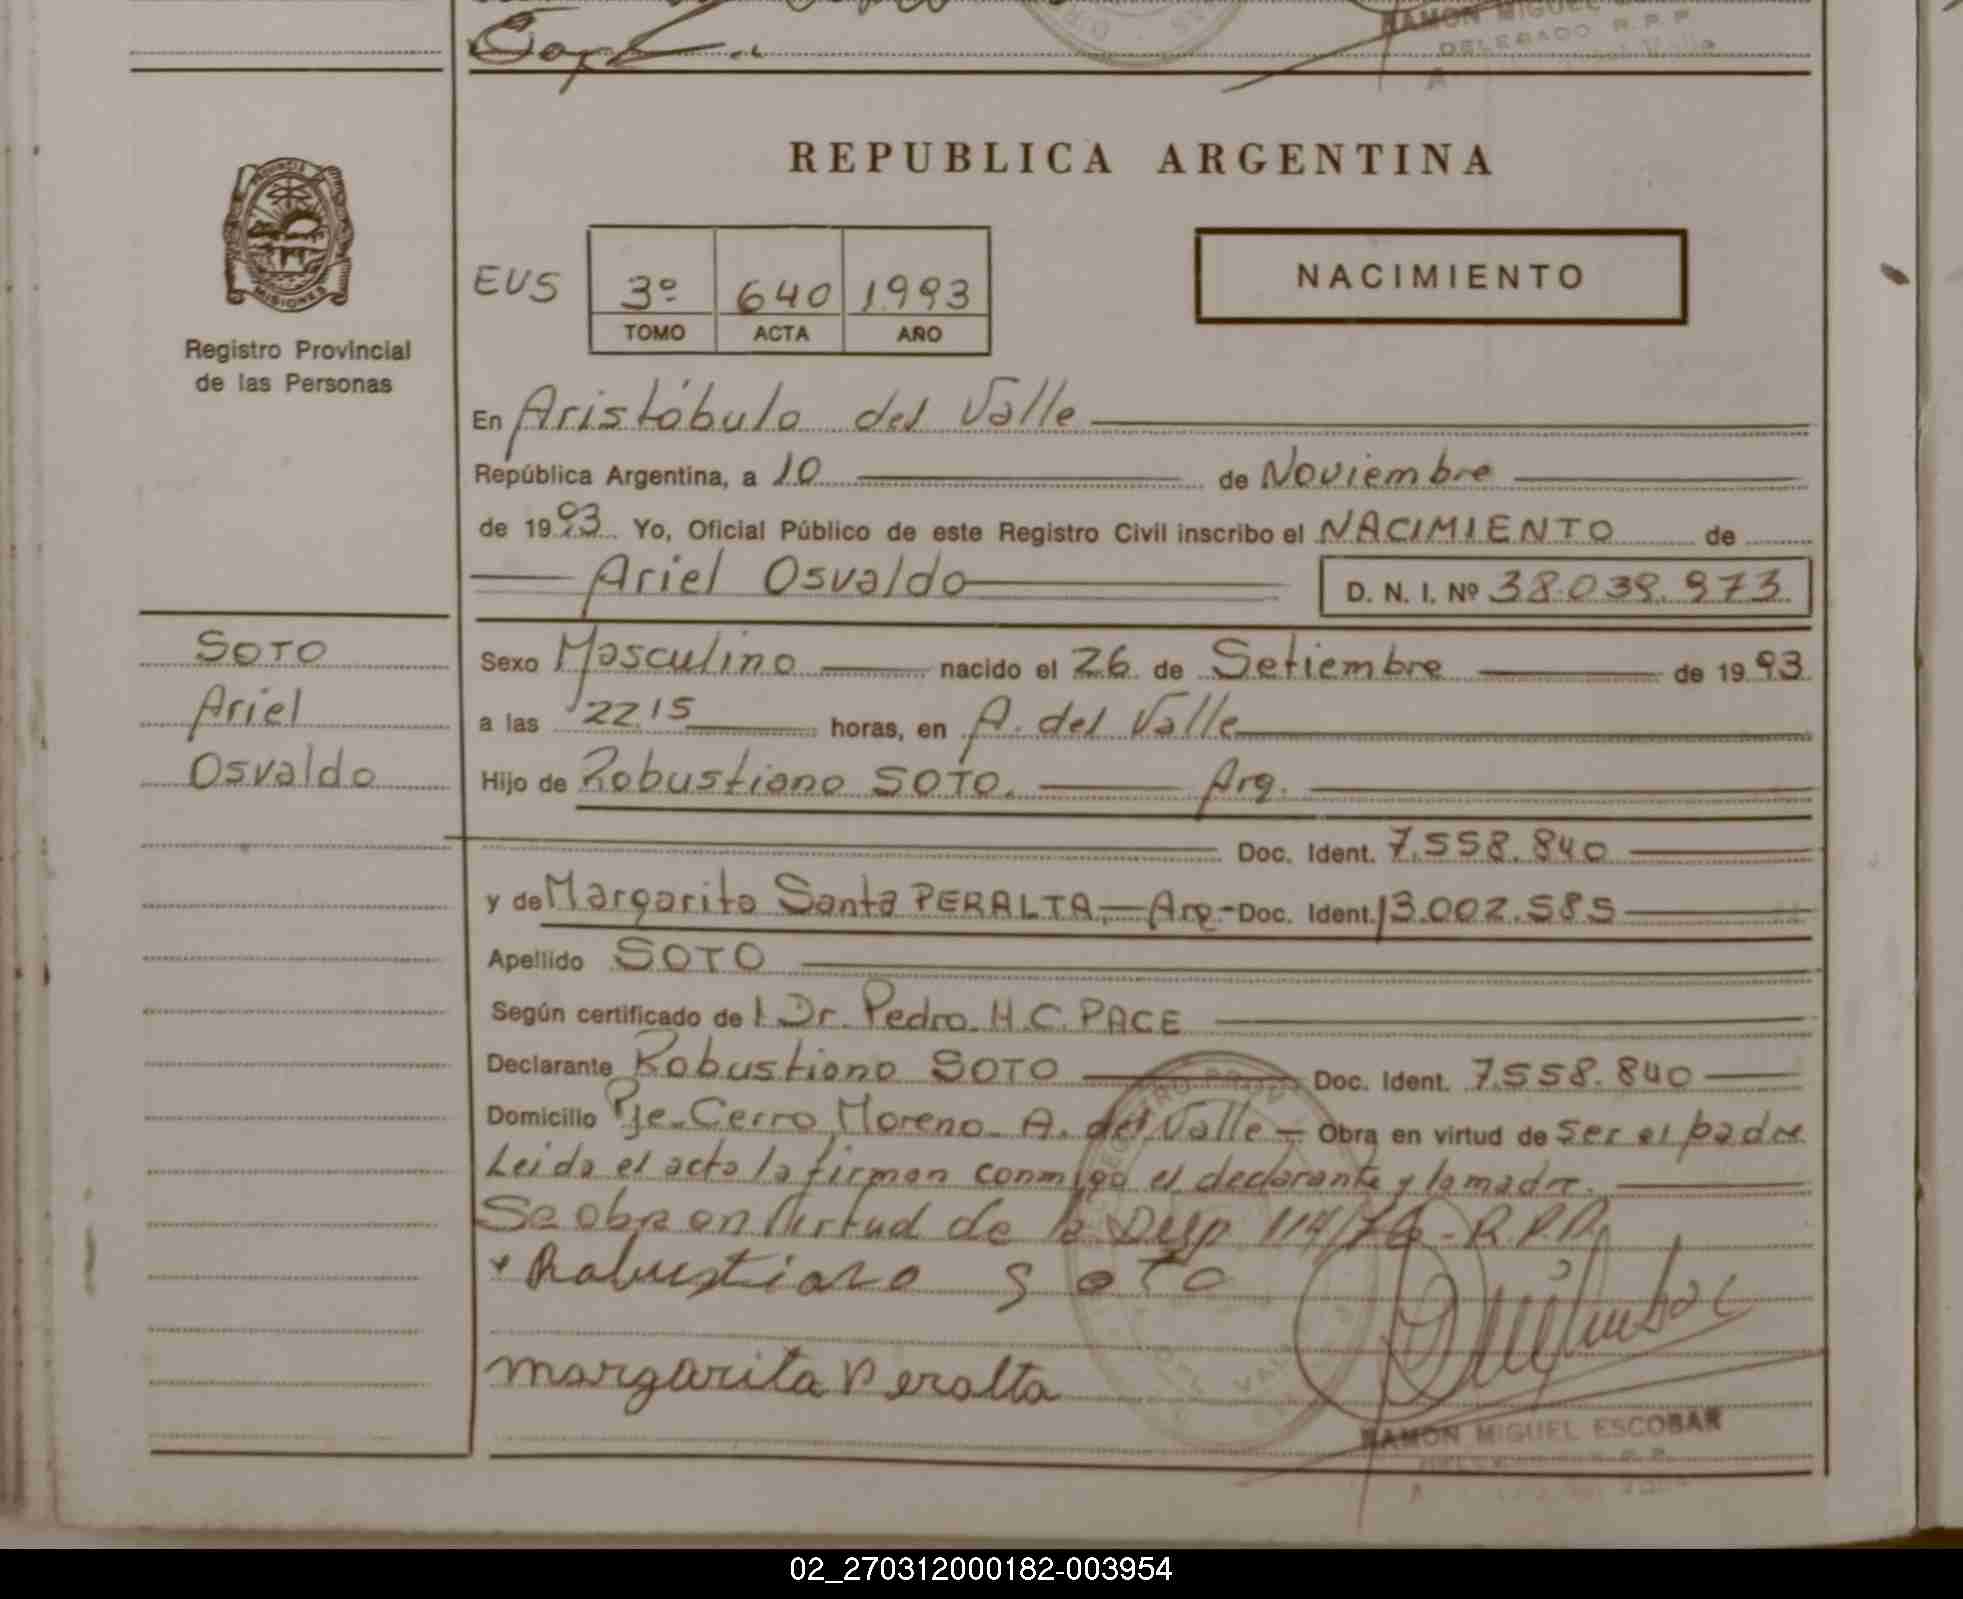 RAMON MIGUEL
DELEGADO R.P.P.
REPUBLICA ARGENTINA
PROVINCIA
MISIONES
Registro Provincial
de las Personas
EUS 3º 640 1993
TOMO ACTA AÑO
NACIMIENTO
En Aristóbulo del Valle
República Argentina, a 10 de Noviembre
de 1993. Yo, Oficial Público de este Registro Civil inscribo el NACIMIENTO de
Ariel Osvaldo D. N. I. Nº 38.039.973
SOTO
Ariel
Osvaldo
Sexo Masculino nacido el 26 de Setiembre de 1993
a las 22,15 horas, en A. del Valle
Hijo de Robustiano SOTO. Arg.
Doc. Ident. 7.558.840
y de Margarita Santa PERALTA.- Arg.- Doc. Ident. 13.002.585
Apellido SOTO
Según certificado de l Dr. Pedro. H.C. PACE
Declarante Robustiano SOTO Doc. Ident. 7.558.840
Domicilio Pje. Cerro Moreno - A. del Valle - Obra en virtud de ser el padre
Leida el acta la firman conmigo el declarante y la madre.
Se obra en Virtud de la Disp. 114/76 - R.P.P.
Robustiano SOTO
margarita Peralta
RAMON MIGUEL ESCOBAR
02_270312000182-003954